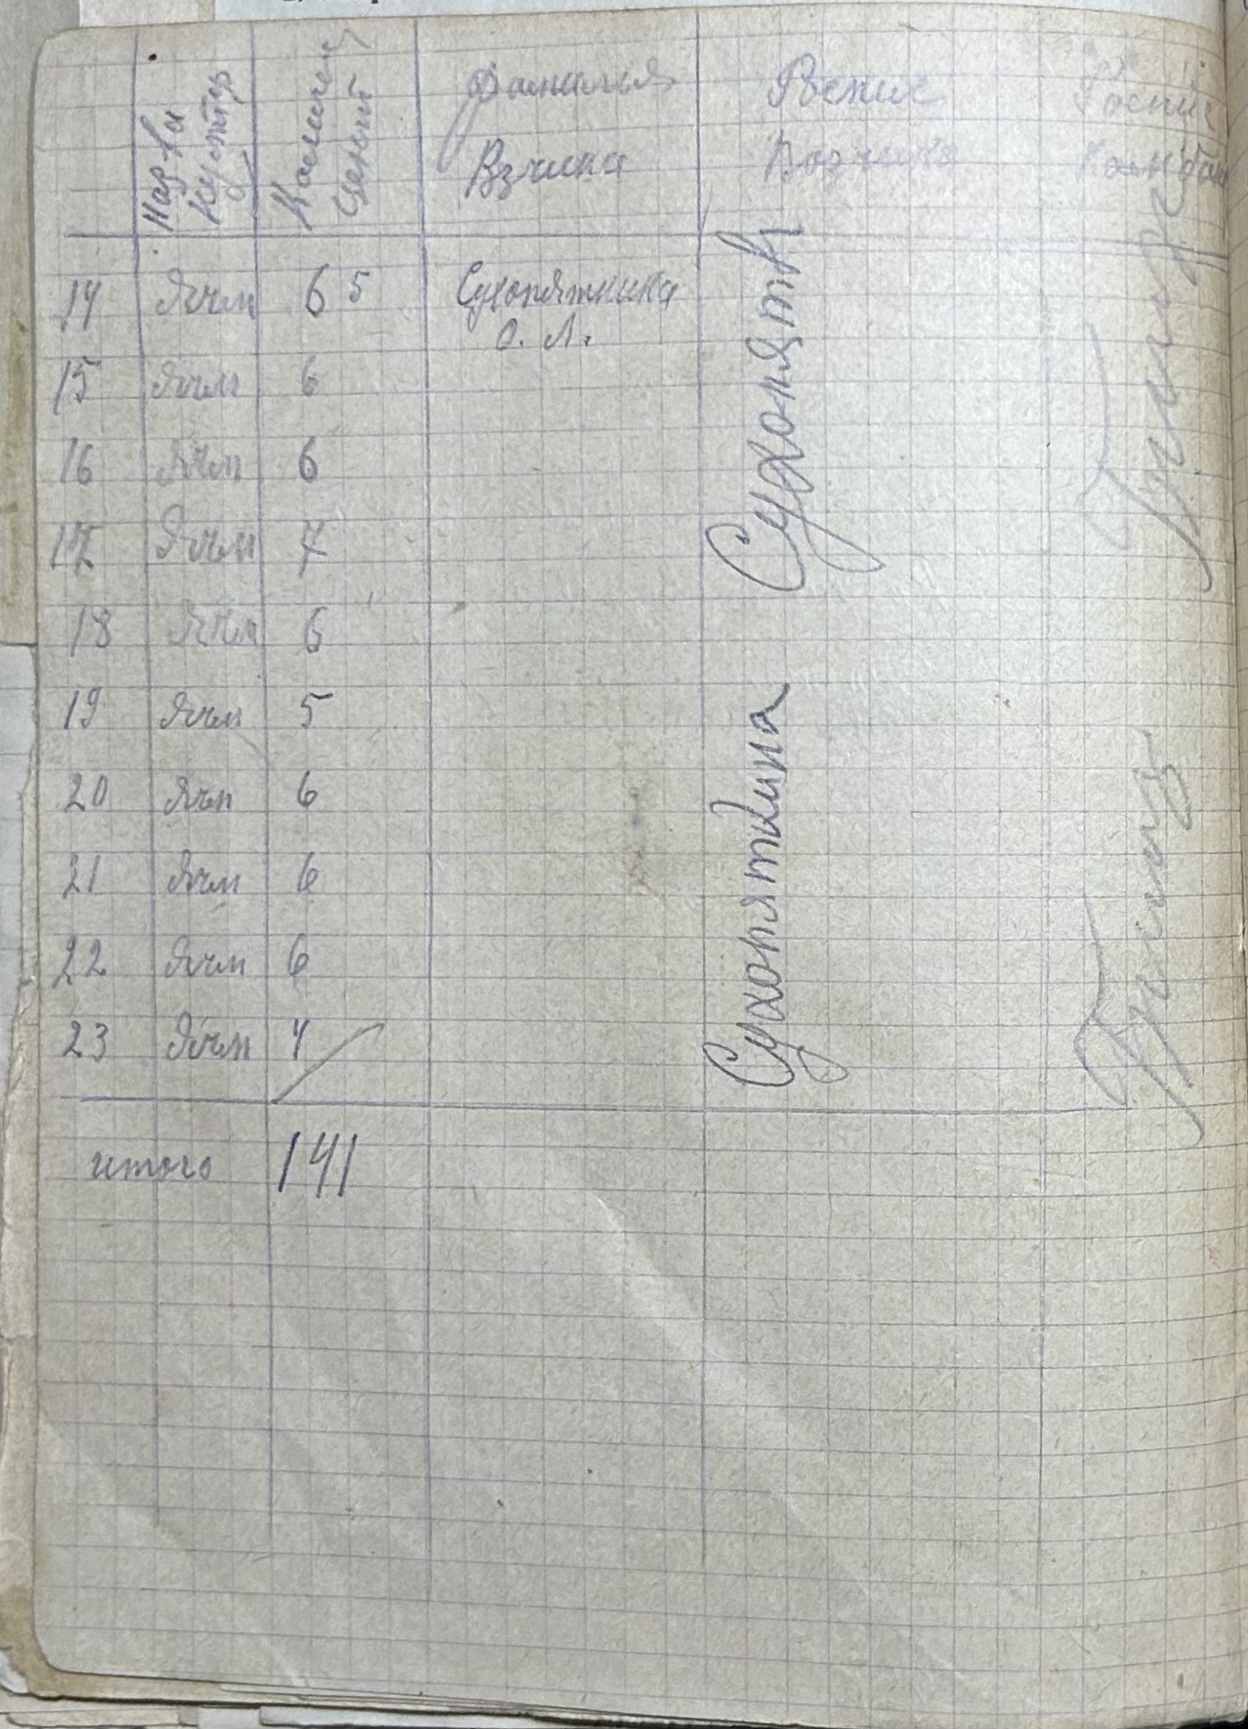 Назва культур
Количе ценый
фамилия
Взчика
Роспис
Возчика
Роспис
Комбай
14 Ячм 6 5 Сухопяткина
О. Л.
15 Ячм 6
16 Ячм 6
17 Ячм 7
18 Ячм 6
19 Ячм 5
20 Ячм 6
21 Ячм 6
22 Ячм 6
23 Ячм 4
Сухопятк
Сухопяткина
итого 141